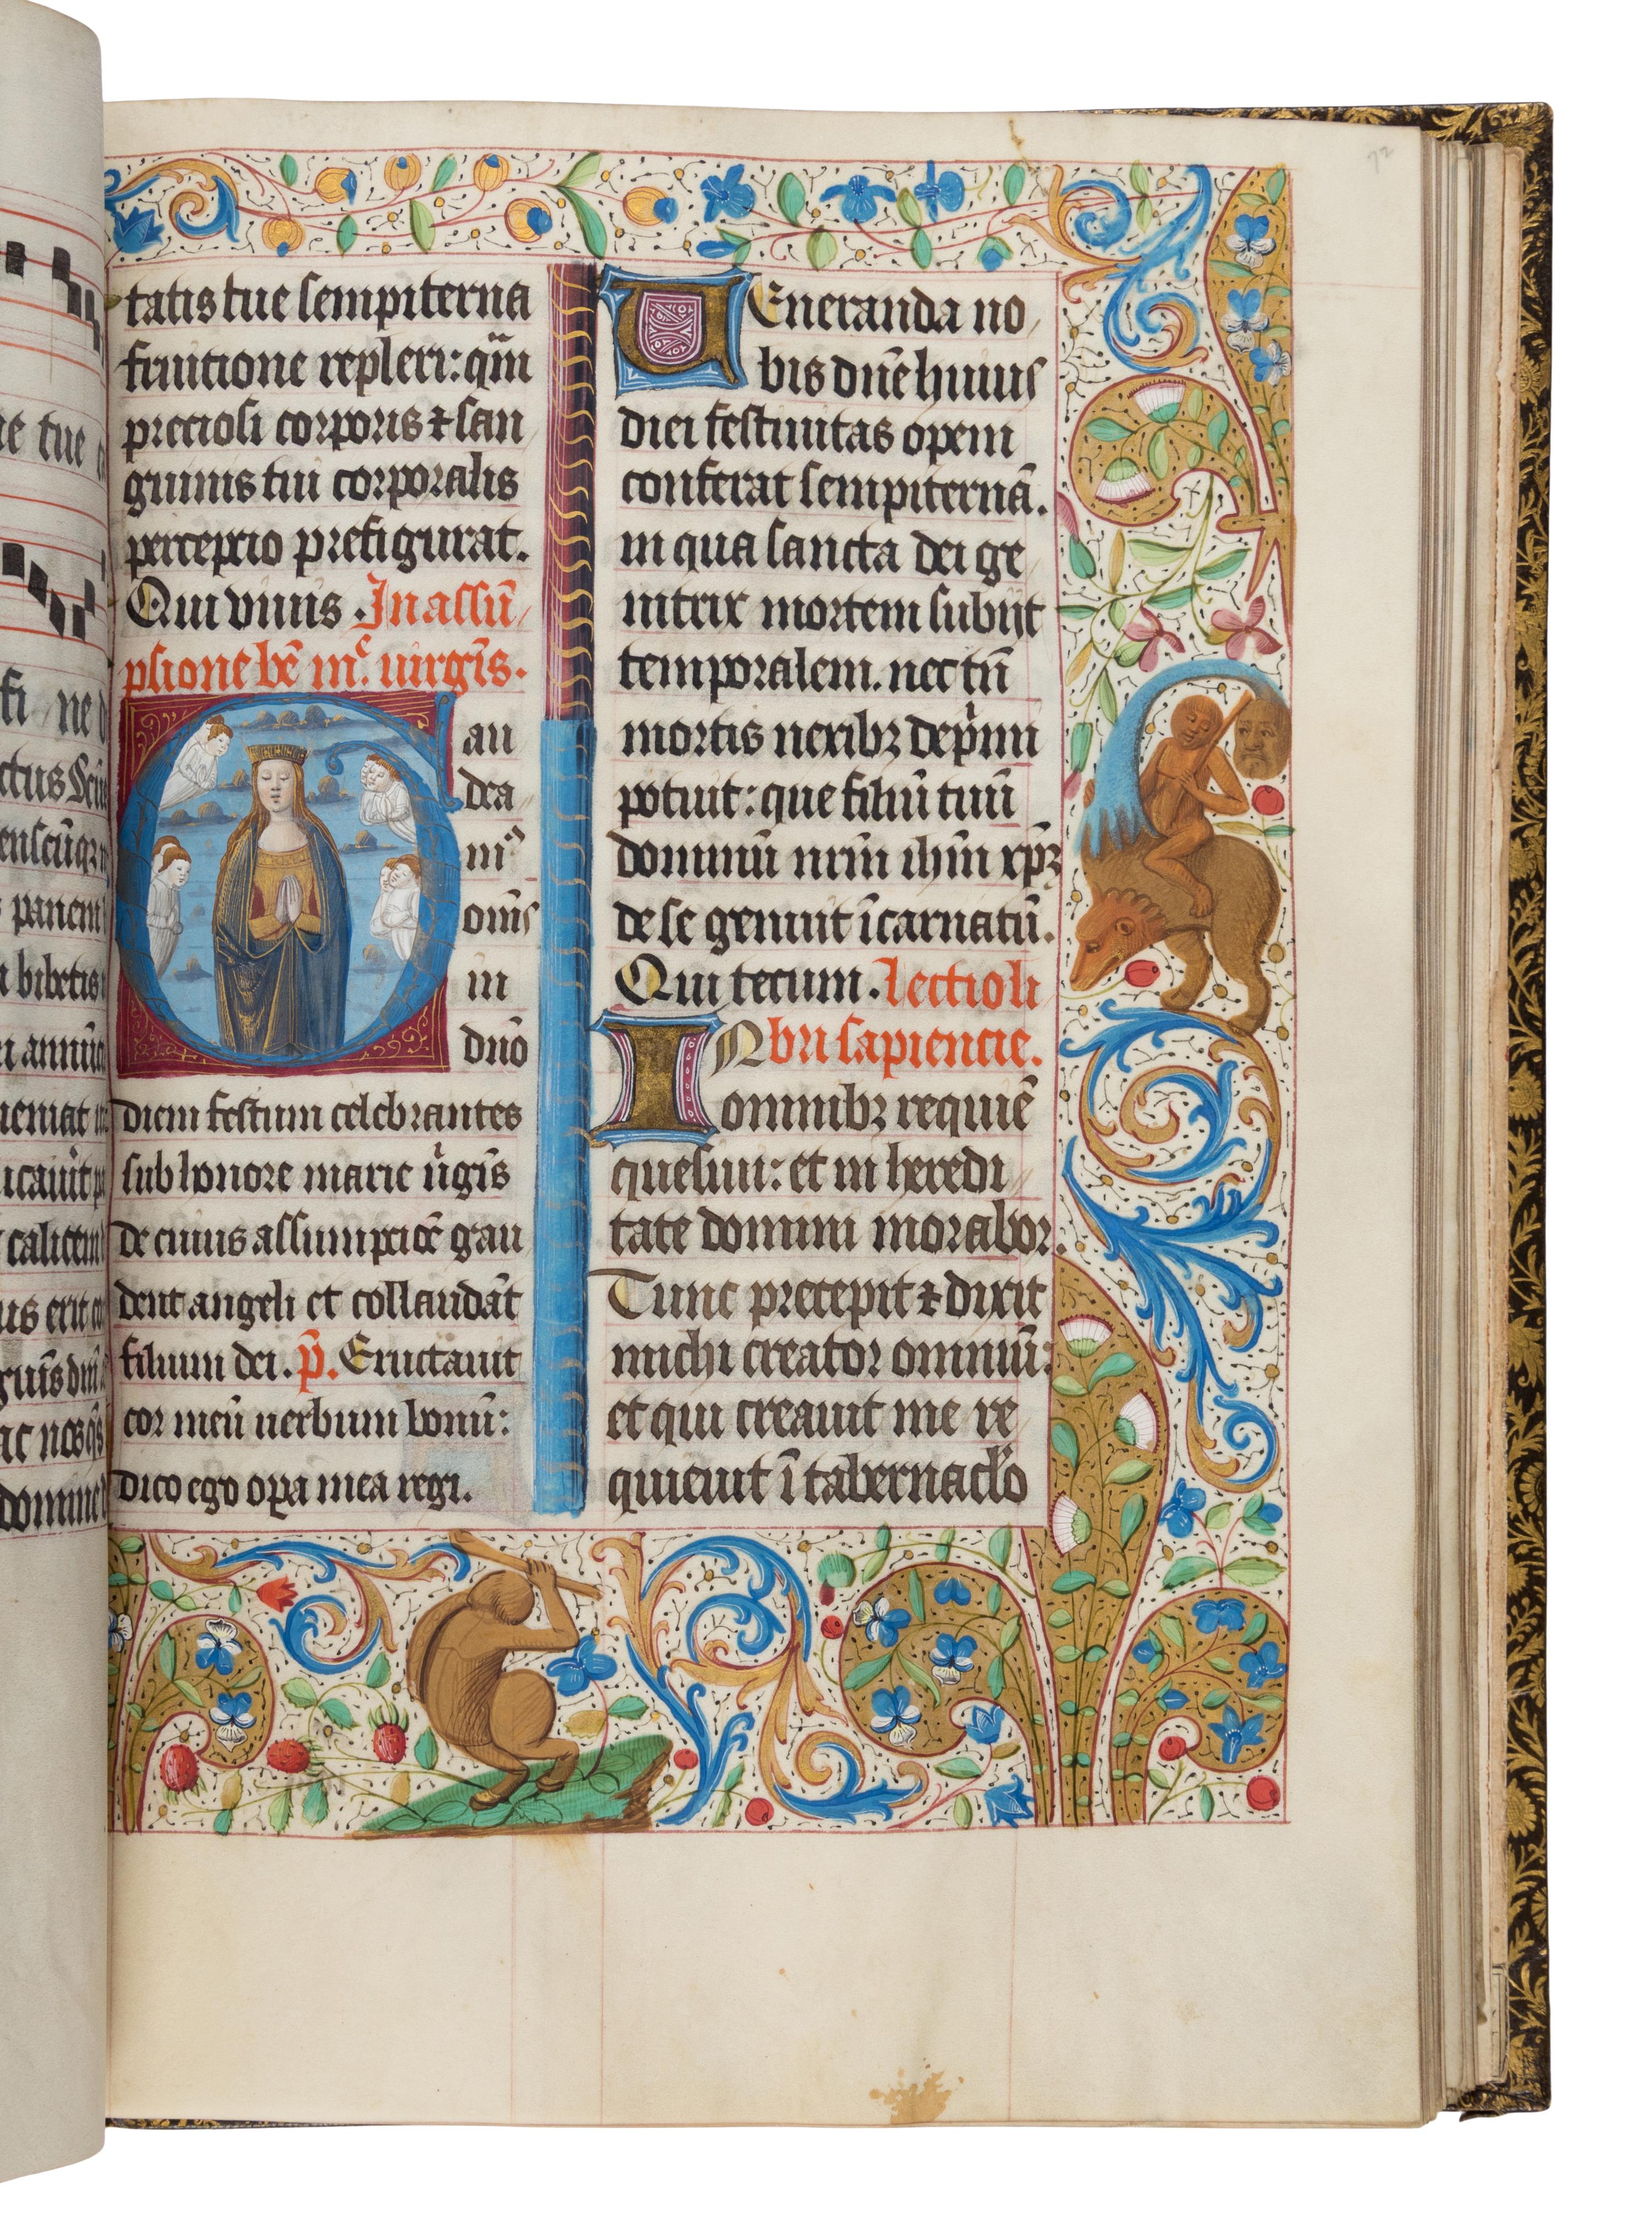 tatis tue sempiterna
fruitione repleri: qm̄
preciosi corporis ⁊ san
guinis tui corporalis
percepcio prefigurat.
Qui viuis. In assū
psione bē mᵉ. uirgīs.
Gau
dea
mꝰ
om̄s
in
dn̄o
diem festum celebrantes
sub honore marie uͥgīs
de cuius assumpcōē gau
dent angeli et collaudāt
filium dei. p̄. Eructauit
cor meū uerbum bonū:
dico ego opa mea regi.
72
VEneranda no
bis dn̄e huius
diei festiuitas opem
conferat sempiternā.
in qua sancta dei ge
nitrix mortem subijt
temporalem. nec tn̄
mortis nexibꝫ depͥmi
potuit: que filiū tuū
dominū nrm̄ ihm̄ xpꝫ
de se genuit īcarnatū.
Qui tecum. Lectio li
IN bri sapiencie.
omnibꝫ requiē
quesiui: et in heredi
tate domini morabor.
Tunc precepit ⁊ dixit
michi creator omniū:
et qui creauit me re
quieuit ī tabernaclo
ne tue
fi ne
ctus
panem
bibetis
calicem
us erit